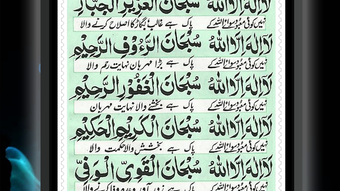 لَا إِلٰهَ إِلَّا اللّٰهُ سُبْحَانَ الْعَزِيزِ الْجَبَّارِ
نہیں کوئی معبود سوائے اللہ کے پاک ہے غالب بگاڑ کا اصلاح کرنے والا
لَا إِلٰهَ إِلَّا اللّٰهُ سُبْحَانَ الرَّءُوْفِ الرَّحِيْمِ
نہیں کوئی معبود سوائے اللہ کے پاک ہے بڑا مہربان نہایت رحم والا
لَا إِلٰهَ إِلَّا اللّٰهُ سُبْحَانَ الْغَفُوْرِ الرَّحِيْمِ
نہیں کوئی معبود سوائے اللہ کے پاک ہے بخشنے والا نہایت مہربان
لَا إِلٰهَ إِلَّا اللّٰهُ سُبْحَانَ الْكَرِيْمِ الْحَكِيْمِ
نہیں کوئی معبود سوائے اللہ کے پاک ہے بخشش والا حکمت والا
لَا إِلٰهَ إِلَّا اللّٰهُ سُبْحَانَ الْقَوِيِّ الْوَفِيِّ
نہیں کوئی معبود سوائے اللہ کے پاک ہے